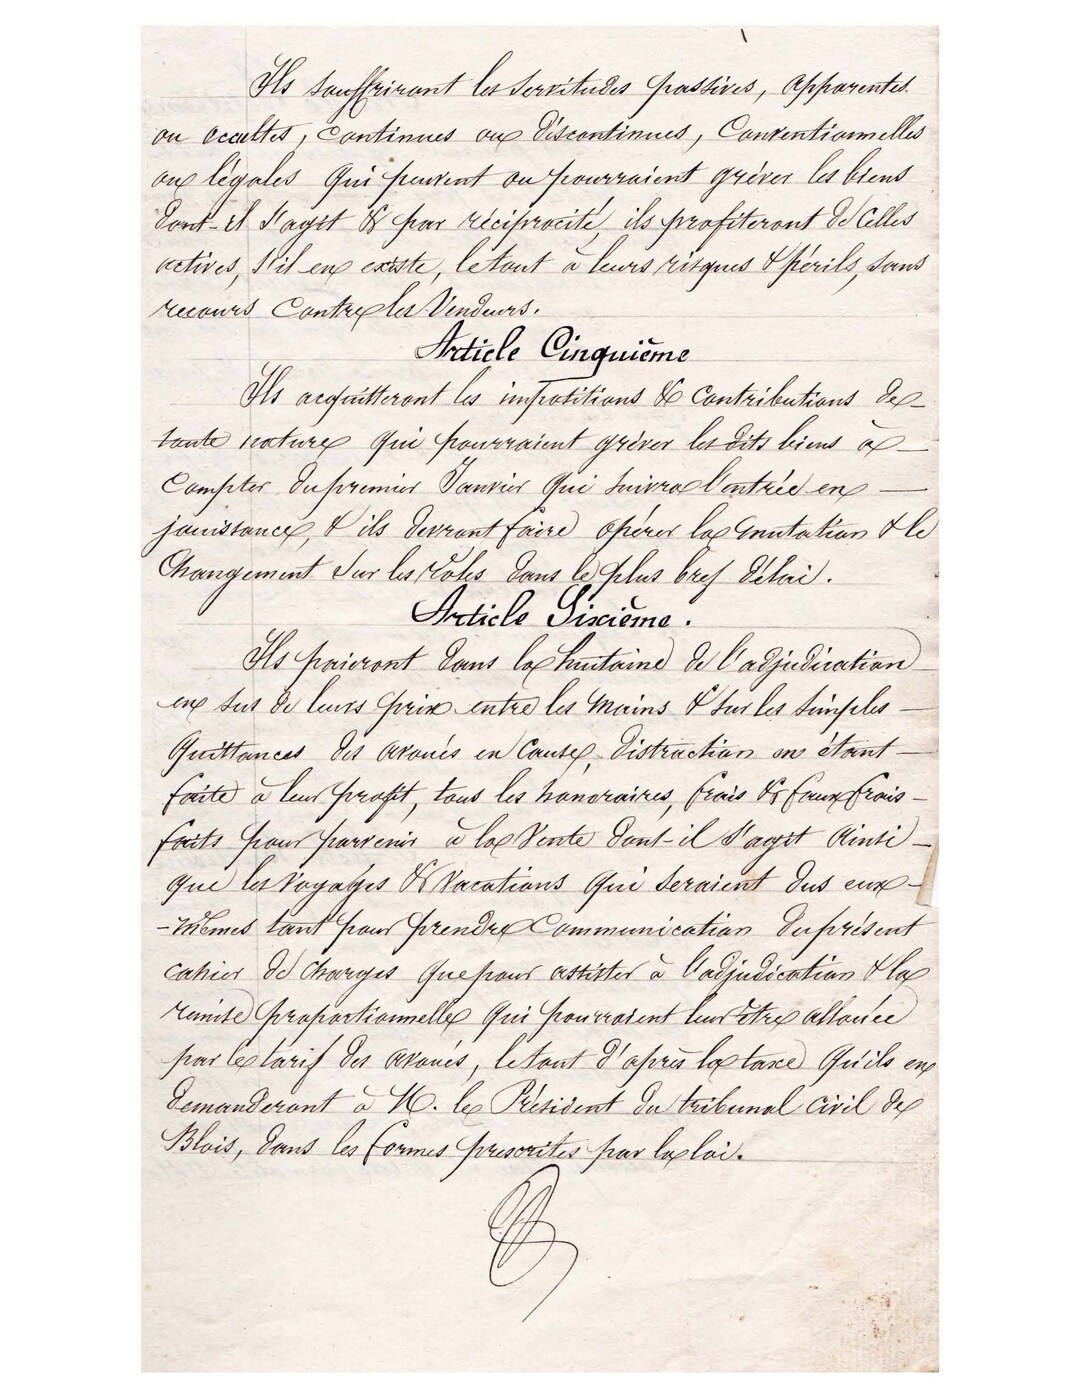 Ils souffriront les servitudes passives, apparentes
ou occultes, continues ou discontinues, Conventionnelles
ou légales qui peuvent ou pourraient gréver les biens
dont-il s'agit & par réciprocité, ils profiteront de Celles
actives, s'il en existe, le tout à leurs risques & périls, sans
recours Contre les Vendeurs.
Article Cinquième
Ils acquitteront les impositions & contributions de
toute nature qui pourraient gréver les dits biens à
Compter du premier Janvier qui suivra l'entrée en
jouissance, & ils devront faire opérer la mutation & le
Changement sur les rôles dans le plus bref délai.
Article Sixième.
Ils paieront dans la huitaine de l'adjudication
en sus de leurs prix entre les mains & sur les simples
quittances des avoués en Cause, distraction en étant
faite à leur profit, tous les honoraires, frais & faux frais
faits pour parvenir à la Vente dont-il s'agit Ainsi
que les Voyages & Vacations qui seraient dus eux-
-mêmes tant pour prendre Communication du présent
cahier de Charges que pour assister à l'adjudication & la
remise proportionnelle qui pourraient leur être allouée
par le tarif des avoués, le tout d'après la taxe qu'ils en
demanderont à M. le Président du tribunal civil de
Blois, dans les formes prescrites par la loi.